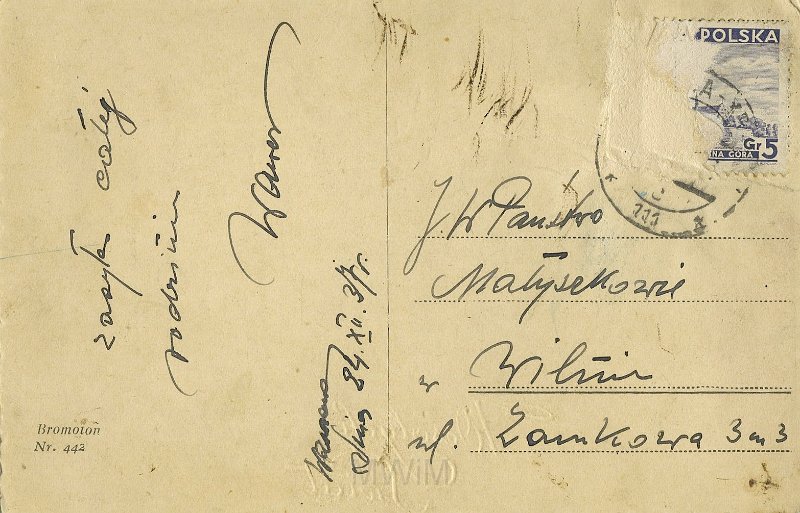 zasyła całej
rodzinie
Wawer
Warszawa
dnia 24.XII.37r.
Bromotoń
Nr. 442
POLSKA
Gr 5
NA GÓRA
J. W Państwo
Małysekowie
w Wilnie
ul. Zamkowa 3 m 3
MWM